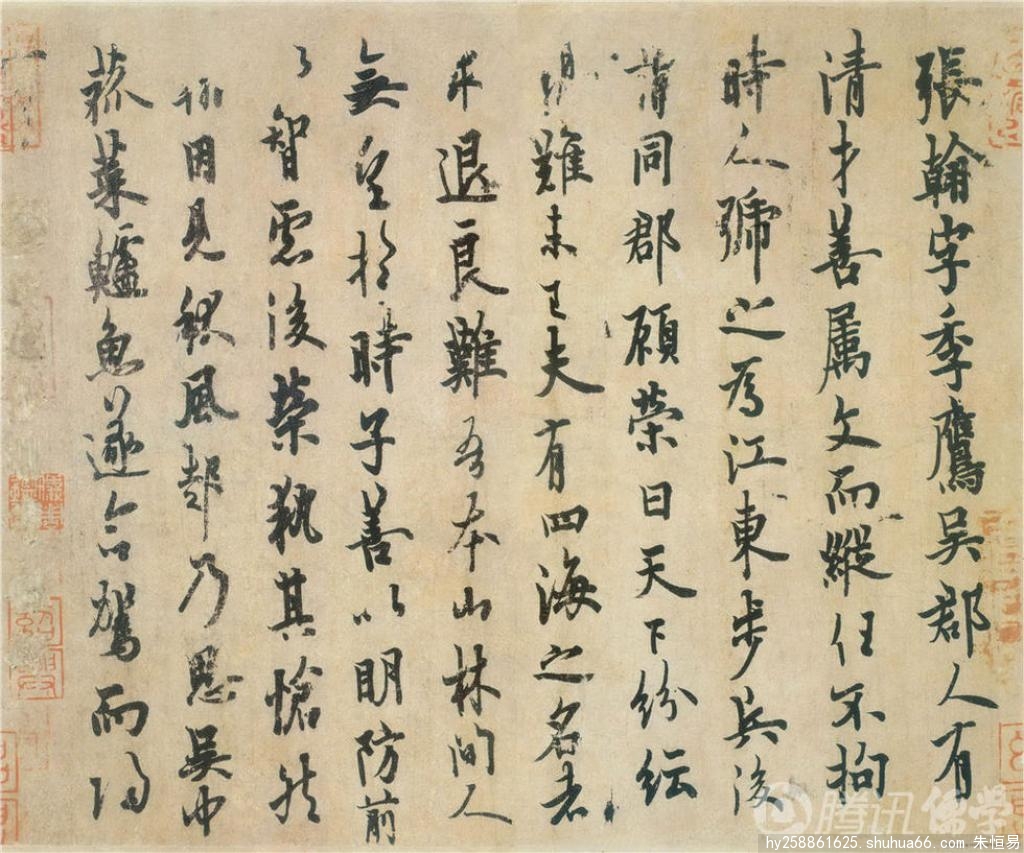 張翰字季鷹吳郡人有
清才善屬文而縱任不拘
時人號之為江東步兵後
謂同郡顧榮曰天下紛紜
禍難未已夫有四海之名者
求退良難吾本山林間人
無望於時子善以明防前
以智慮後榮執其愴然
翰因見秋風起乃思吳中
菰菜鱸魚遂命駕而歸
腾讯儒学
hy258861625.shuhua66.com 朱恒易